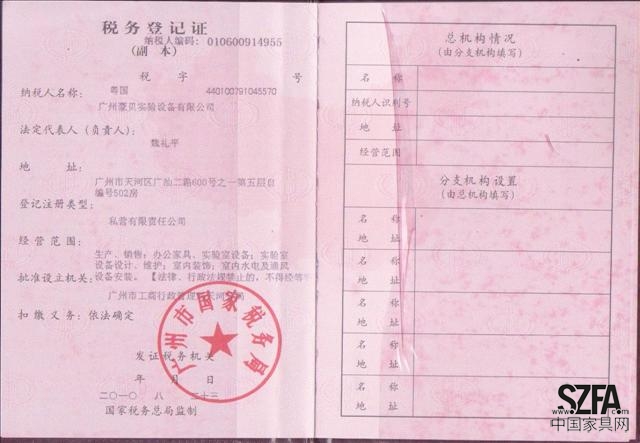 税务登记证
纳税人编码：010600914955
（副 本）
税 字 号
粤国 440100791045570
纳税人名称：
广州蒙贝实验设备有限公司
法定代表人（负责人）：
魏礼平
地 址：
广州市天河区广汕二路600号之一第五层自
编号502房
登记注册类型：
私营有限责任公司
经营范围：
生产、销售：办公家具、实验室设备；实验室
设备设计、维护；室内装饰；室内水电及通风
批准设立机关：
设备安装。【法律、行政法规禁止的，不得经
广州市工商行政管理局天河分局
扣缴义务：依法确定
发证税务机关
年 月 日
二〇一〇 八 二十三
国家税务总局监制
广州市国家税务局
总机构情况
（由分支机构填写）
名 称
纳税人识别号
地 址
经营范围
分支机构设置
（由总机构填写）
名 称
地 址
名 称
地 址
名 称
地 址
名 称
地 址
名 称
地 址
SZFA.com
中国家具网